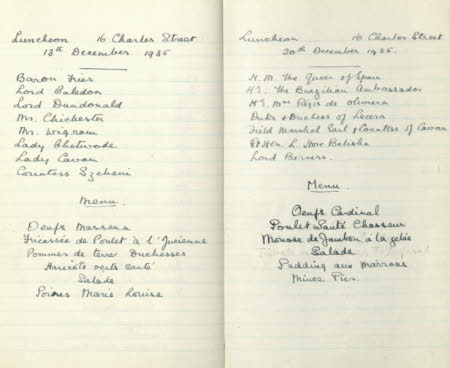 Luncheon 16 Charles Street
13th December 1935
Baron Fries
Lord Caledon
Lord Dundonald
Mr. Chichester
Mr. Wigram
Lady Chetwode
Lady Cavan
Countess Szcheni
Menu.
Oeufs Massena
Fricassée de Poulet à l'
Pommes de terre Duchesses
Haricots verts sauté
Salade
Poires Marie Louise
Luncheon 16 Charles Street
20th December 1935.
H.M. The Queen of Spain
H.E. The Brazilian Ambassador
H.E. Mme Régis de Oliveira
Duke & Duchess of Lecera
Field Marshal Earl & Countess of Cavan
Rt Hon L. Hore Belisha
Lord Berners.
Menu.
Oeufs Cardinal
Poulet Sauté Chasseur
Mousse de Jambon à la gelée
Salade
Pudding aux Marrons
Mince Pies.